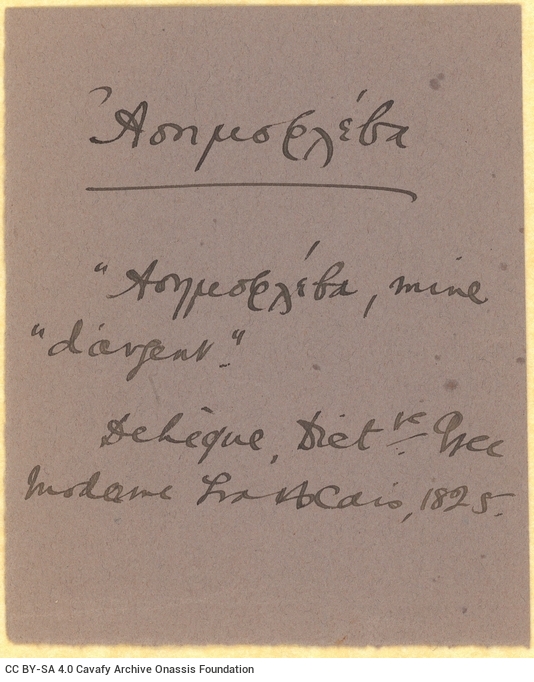 Ἀσημοφλέβα
"Ἀσημοφλέβα, mine
"d'argent."
Dehèque, Dict re Grec
Moderne Français, 1825.
CC BY-SA 4.0 Cavafy Archive Onassis Foundation